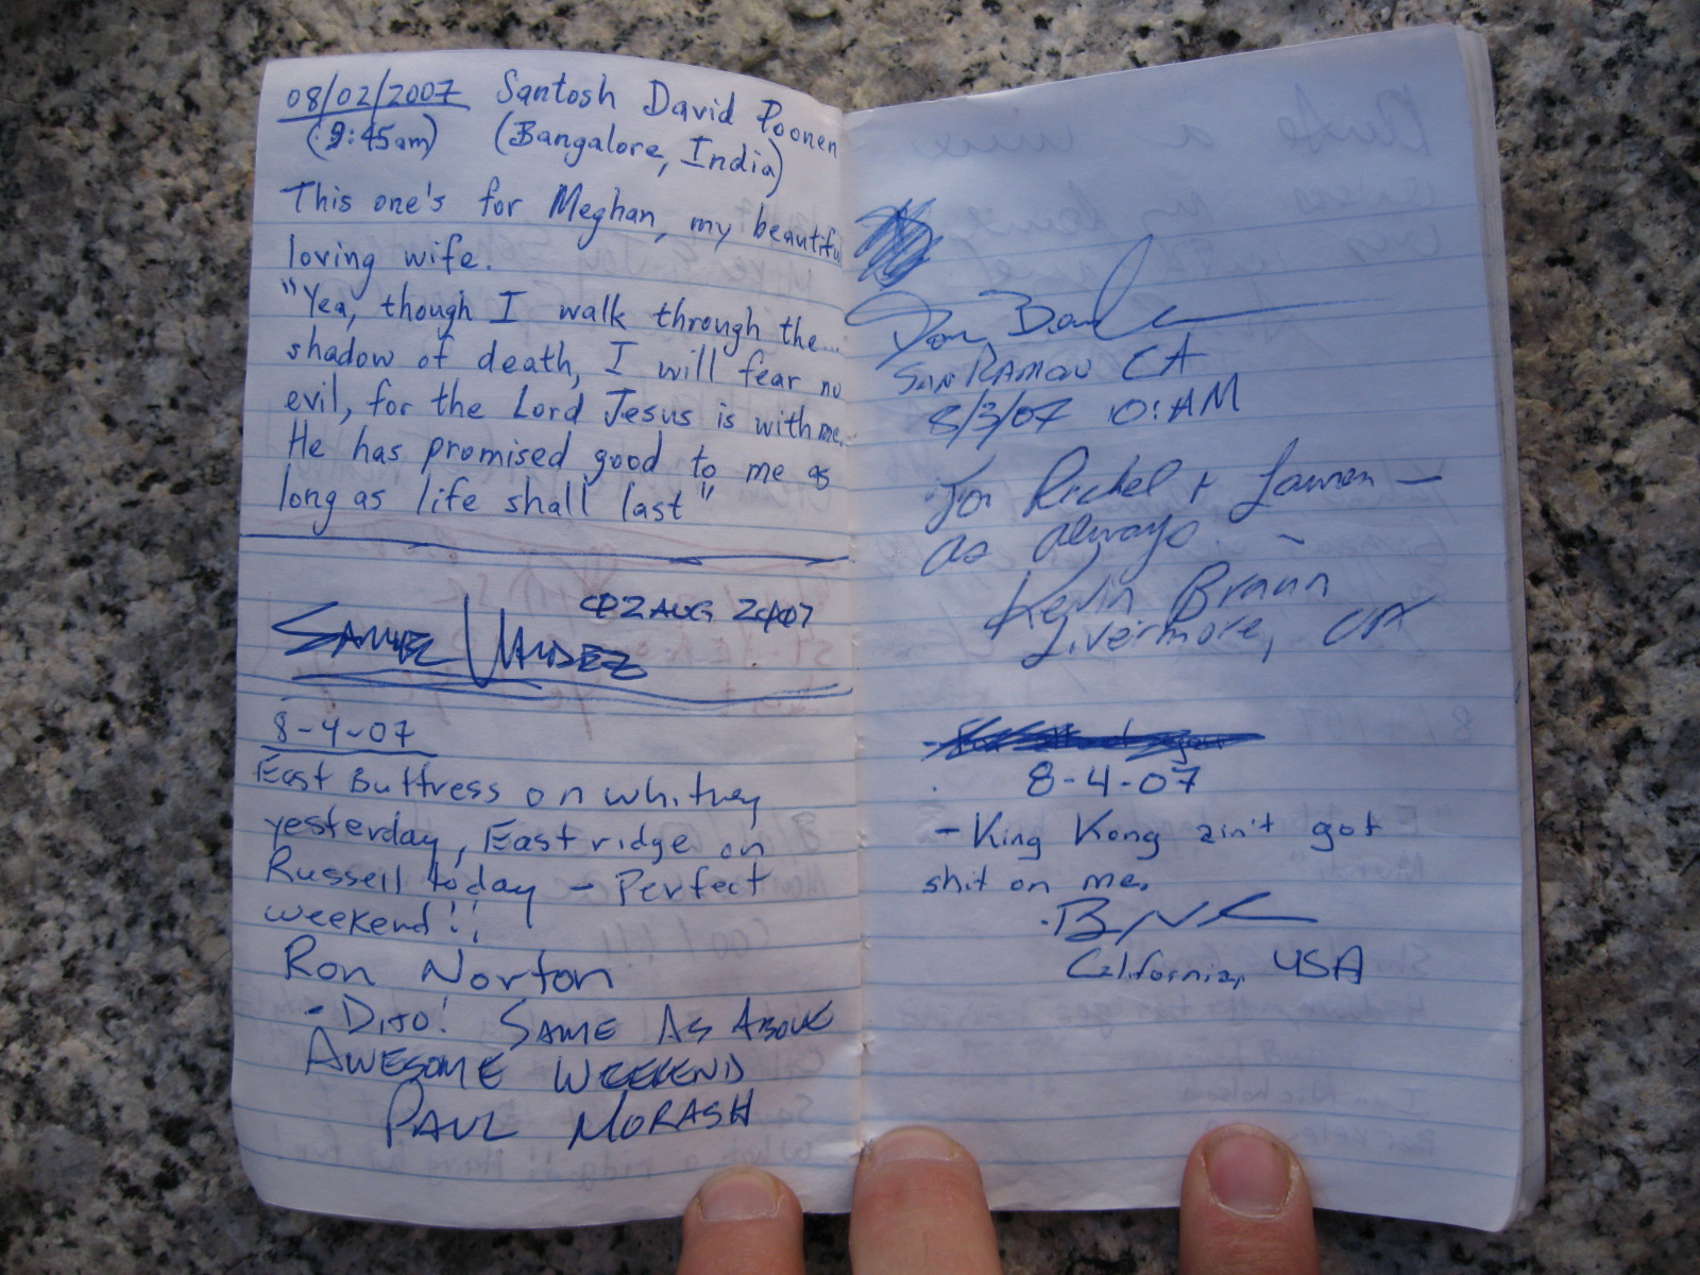 08/02/2007 Santosh David Poonen
(9:45am) (Bangalore, India)
This one's for Meghan, my beautiful
loving wife.
"Yea, though I walk through the...
shadow of death, I will fear no
evil, for the Lord Jesus is with me.
He has promised good to me as
long as life shall last"
02 AUG 2007
SAMUEL
8-4-07
East Buttress on Whitney
yesterday, East ridge on
Russell today - Perfect
weekend!!
Ron Norton
- DITO! SAME AS ABOVE
AWESOME WEEKEND
PAUL MORASH
San Ramon CA
8/3/07 10:AM
For Rachel + Lauren -
as always. -
Kevin Braun
Livermore, CA
8-4-07
- King Kong ain't got
shit on me.
California, USA